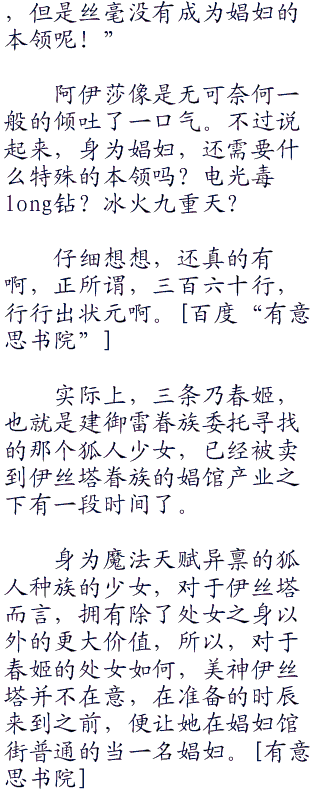 ，但是丝毫没有成为娼妇的
本领呢！”
阿伊莎像是无可奈何一
般的倾吐了一口气。不过说
起来，身为娼妇，还需要什
么特殊的本领吗？电光毒
long钻？冰火九重天？
仔细想想，还真的有
啊，正所谓，三百六十行，
行行出状元啊。[百度“有意
思书院”]
实际上，三条乃春姬，
也就是建御雷眷族委托寻找
的那个狐人少女，已经被卖
到伊丝塔眷族的娼馆产业之
下有一段时间了。
身为魔法天赋异禀的狐
人种族的少女，对于伊丝塔
而言，拥有除了处女之身以
外的更大价值，所以，对于
春姬的处女如何，美神伊丝
塔并不在意，在准备的时辰
来到之前，便让她在娼妇馆
街普通的当一名娼妇。[有意
思书院]